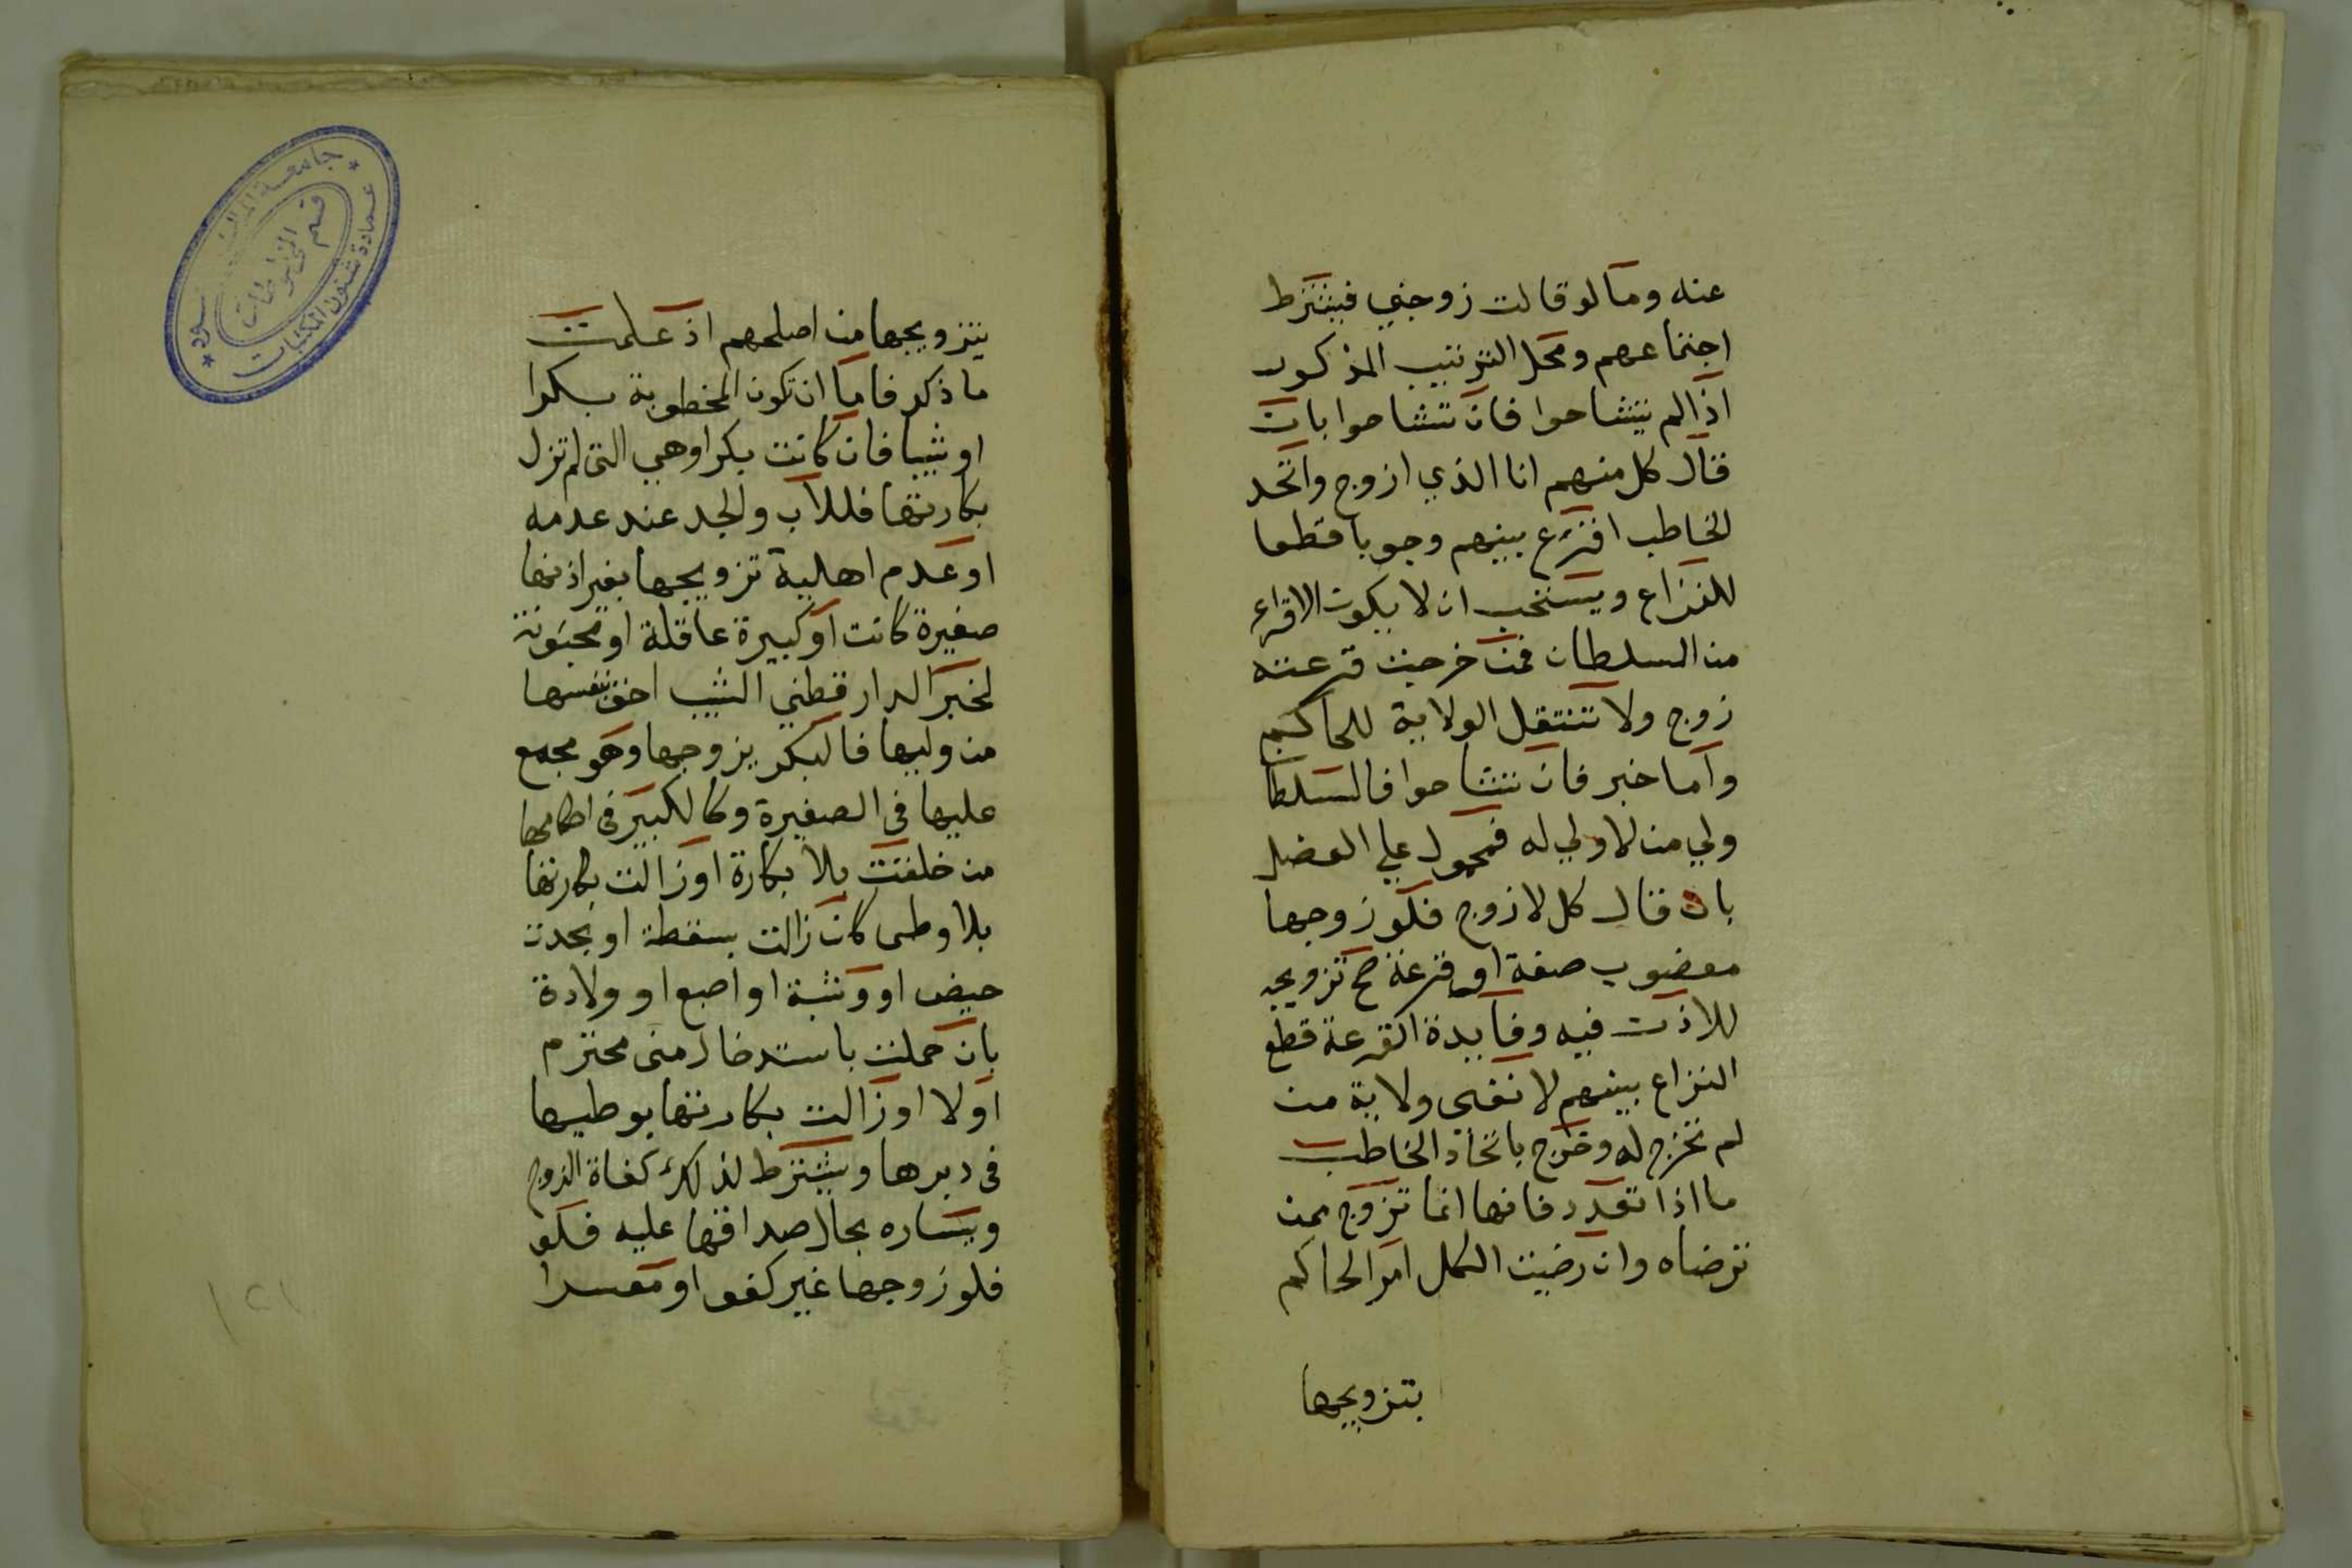 عنه وما لو قالت زوجني فيشترط
اجتماعهم ومحل الترتيب المذكور
اذا لم يتشاحوا فان تشاحوا بان
قال كل منهم انا الذي ازوج واتحد
الخاطب اقترع بينهم وجوبا قطعا
للنزاع ويستحب ان لا يكون الاقراع
من السلطان فمن خرجت قرعته
زوج ولا تنتقل الولاية للحاكم
واما خبر فان تشاحوا فالسلطا
ولي من لا ولي له فمحمول علي العضل
بان قال كل لا ازوج فلو زوجها
معضوب صفة او قرعة صح تزويجه
للاذن فيه وفايدة القرعة قطع
النزاع بينهم لا نفي ولاية من
لم تخرج له وخرج باتحاد الخاطب
ما اذا تعدد فانها انما تزوج بمن
ترضاه وان رضيت الكل امر الحاكم
بتزويجها
بتزويجها من اصلحهم اذ علمت
ما ذكر فاما ان تكون المخطوبة بكرا
او ثيبا فان كانت بكرا وهي التي لم تزل
بكارتها فللاب والجد عند عدمه
او عدم اهلية تزويجها بغير اذنها
صغيرة كانت او كبيرة عاقلة او مجنونة
لخبر الدارقطني الثيب احق بنفسها
من وليها فالبكر يزوجها وهو مجمع
عليها في الصغيرة وكالكبير في احكامها
من خلقت بلا بكارة او زالت بكارتها
بلا وطى كان زالت بسقطة او بحدت
حيض او وثبة او اصبع او ولادة
بان حملت باستدخال منى محترم
اولا او زالت بكارتها بوطيها
في دبرها ويشترط لذلك كفاة الزوج
ويساره بحال صداقها عليه فلو
فلو زوجها غير كفو او معسرا
١٢١
جامعة الملك سعود
عمادة شئون المكتبات
قسم المخطوطات